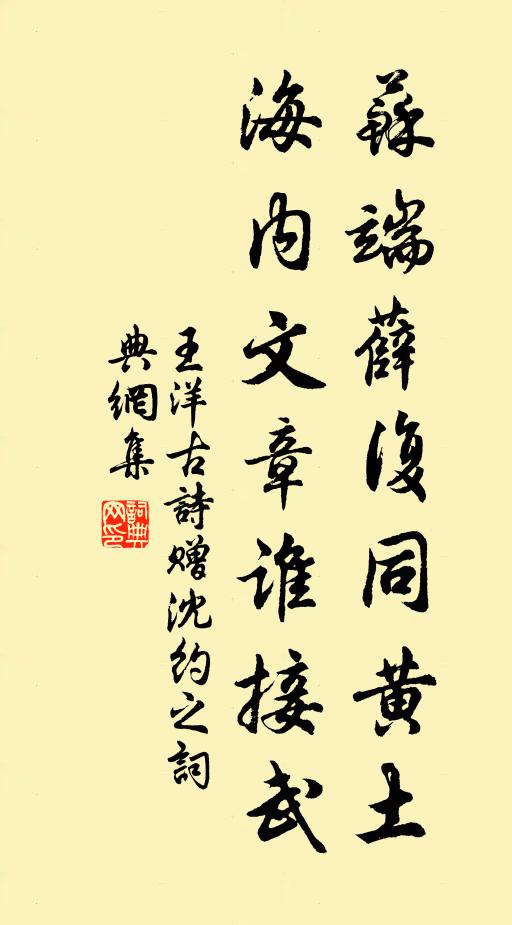 蘇端薛復同黄土
海内文章誰接武
王洋古詩贈沈約之詞
典網集
詞典网印